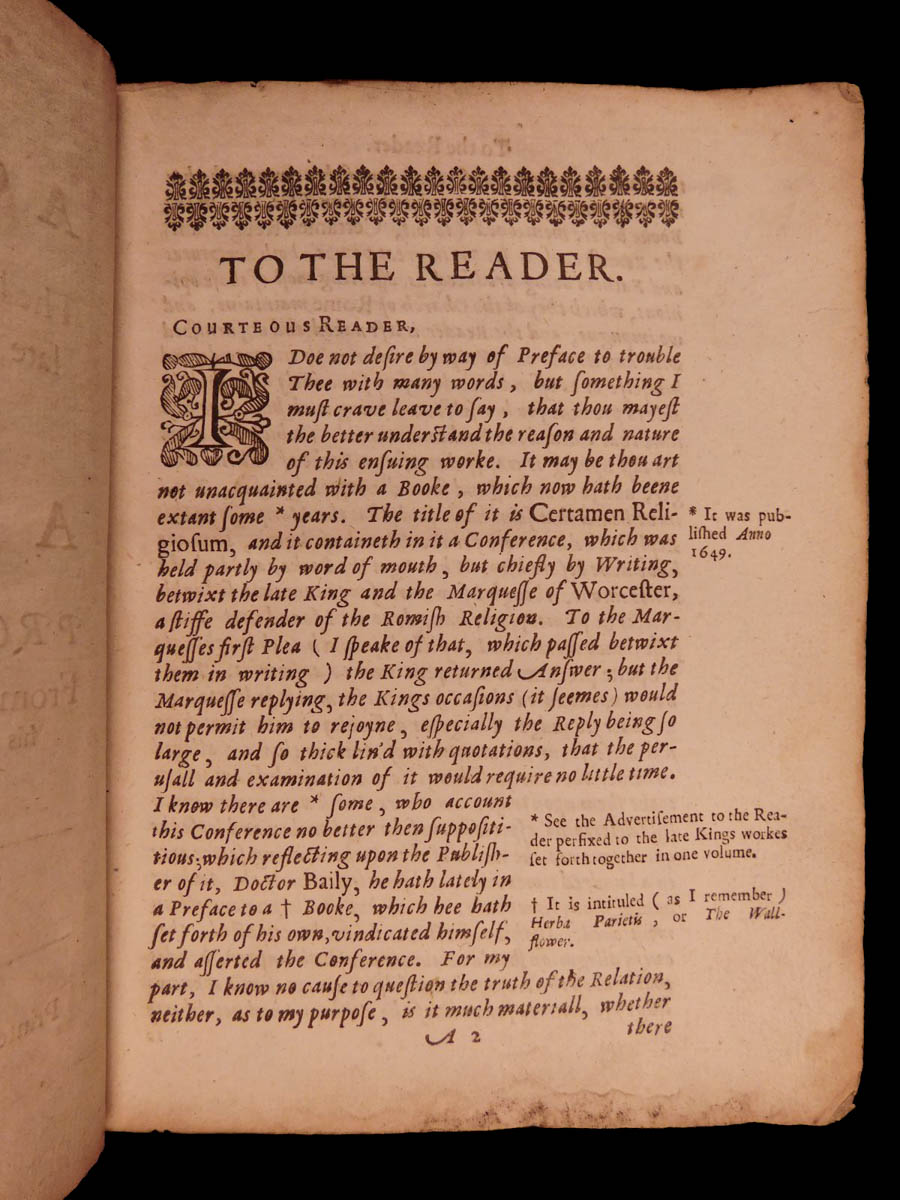 TO THE READER.
COURTEOUS READER,
I Doe not deſire by way of Preface to trouble
Thee with many words, but ſomething I
muſt crave leave to ſay, that thou mayeſt
the better underſtand the reaſon and nature
of this enſuing worke. It may be thou art
not unacquainted with a Booke, which now hath beene
extant ſome * years. The title of it is Certamen Reli-
gioſum, and it containeth in it a Conference, which was
held partly by word of mouth, but chiefly by Writing,
betwixt the late King and the Marqueſſe of Worceſter,
a ſtiffe defender of the Romiſh Religion. To the Mar-
queſſes firſt Plea ( I ſpeake of that, which paſſed betwixt
them in writing ) the King returned Anſwer; but the
Marqueſſe replying, the Kings occaſions (it ſeemes) would
not permit him to rejoyne, eſpecially the Reply being ſo
large, and ſo thick lin'd with quotations, that the per-
uſall and examination of it would require no little time.
I know there are * ſome, who account
this Conference no better then ſuppoſiti-
tious; which reflecting upon the Publiſh-
er of it, Doctor Baily, he hath lately in
a Preface to a † Booke, which hee hath
ſet forth of his own, vindicated himſelf,
and aſſerted the Conference. For my
part, I know no cauſe to queſtion the truth of the Relation,
neither, as to my purpoſe, is it much materiall, whether
there
A 2
* It was pub-
liſhed Anno
1649.
* See the Advertiſement to the Rea-
der perfixed to the late Kings workes
ſet forth together in one volume.
† It is intituled ( as I remember )
Herba Parietis, or The Wall-
flower.